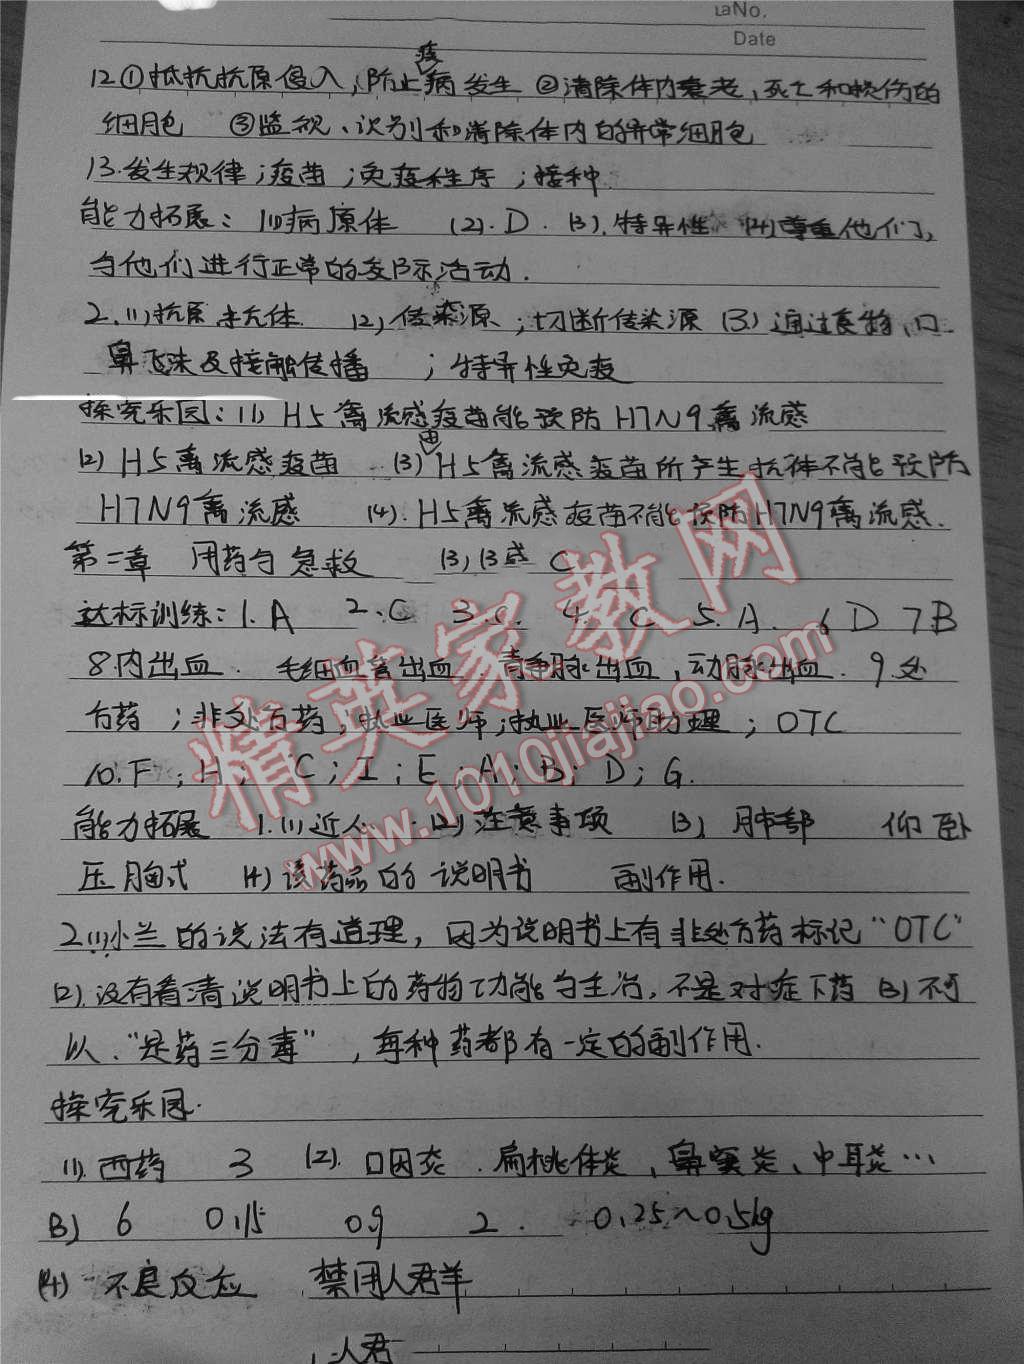 No.
Date
疾
12①抵抗抗原侵入,防止病发生 ②清除体内衰老、死亡和损伤的
细胞 ③监视、识别和清除体内的异常细胞
13.发生规律;疫苗;免疫程序;接种
能力拓展:(1)病原体 (2).D. (3).特异性 (4)尊重他们,
与他们进行正常的交际活动.
2.(1)抗原 抗体 (2)传染源;切断传染源 (3)通过食物、口
鼻飞沫及接触传播 ;特异性免疫
探究乐园:(1)H5禽流感疫苗能预防H7N9禽流感
(2)H5禽流感疫苗 (3)H5禽流感疫苗所产生抗体不能预防
由
H7N9禽流感 (4).H5禽流感疫苗不能预防H7N9禽流感.
第二章 用药与急救 (3) C
达标训练:1.A 2.C 3.C. 4. C 5.A. 6 D 7.B
8内出血. 毛细血管出血.静脉出血,动脉出血. 9.处
方药;非处方药;执业医师;执业医师助理;OTC
10.F;H;C;I;E;A;B;D;G.
能力拓展 1.(1)近人 (2)注意事项 (3)肺部 仰卧
压胸式 (4)该药品的说明书 副作用.
2(1)小兰的说法有道理,因为说明书上有非处方药标记“OTC”
(2).没有看清说明书上的药物功能与主治,不是对症下药 (3)不可
以.“是药三分毒”,每种药都有一定的副作用.
探究乐园.
(1).西药 3 (2).口因炎.扁桃体炎、鼻窦炎、中耳炎…
(3) 6 0.15 0.9 2. 0.25~0.5kg
(4) 不良反应 禁用人君羊
人君
精英家教网
www.1010jiajiao.com